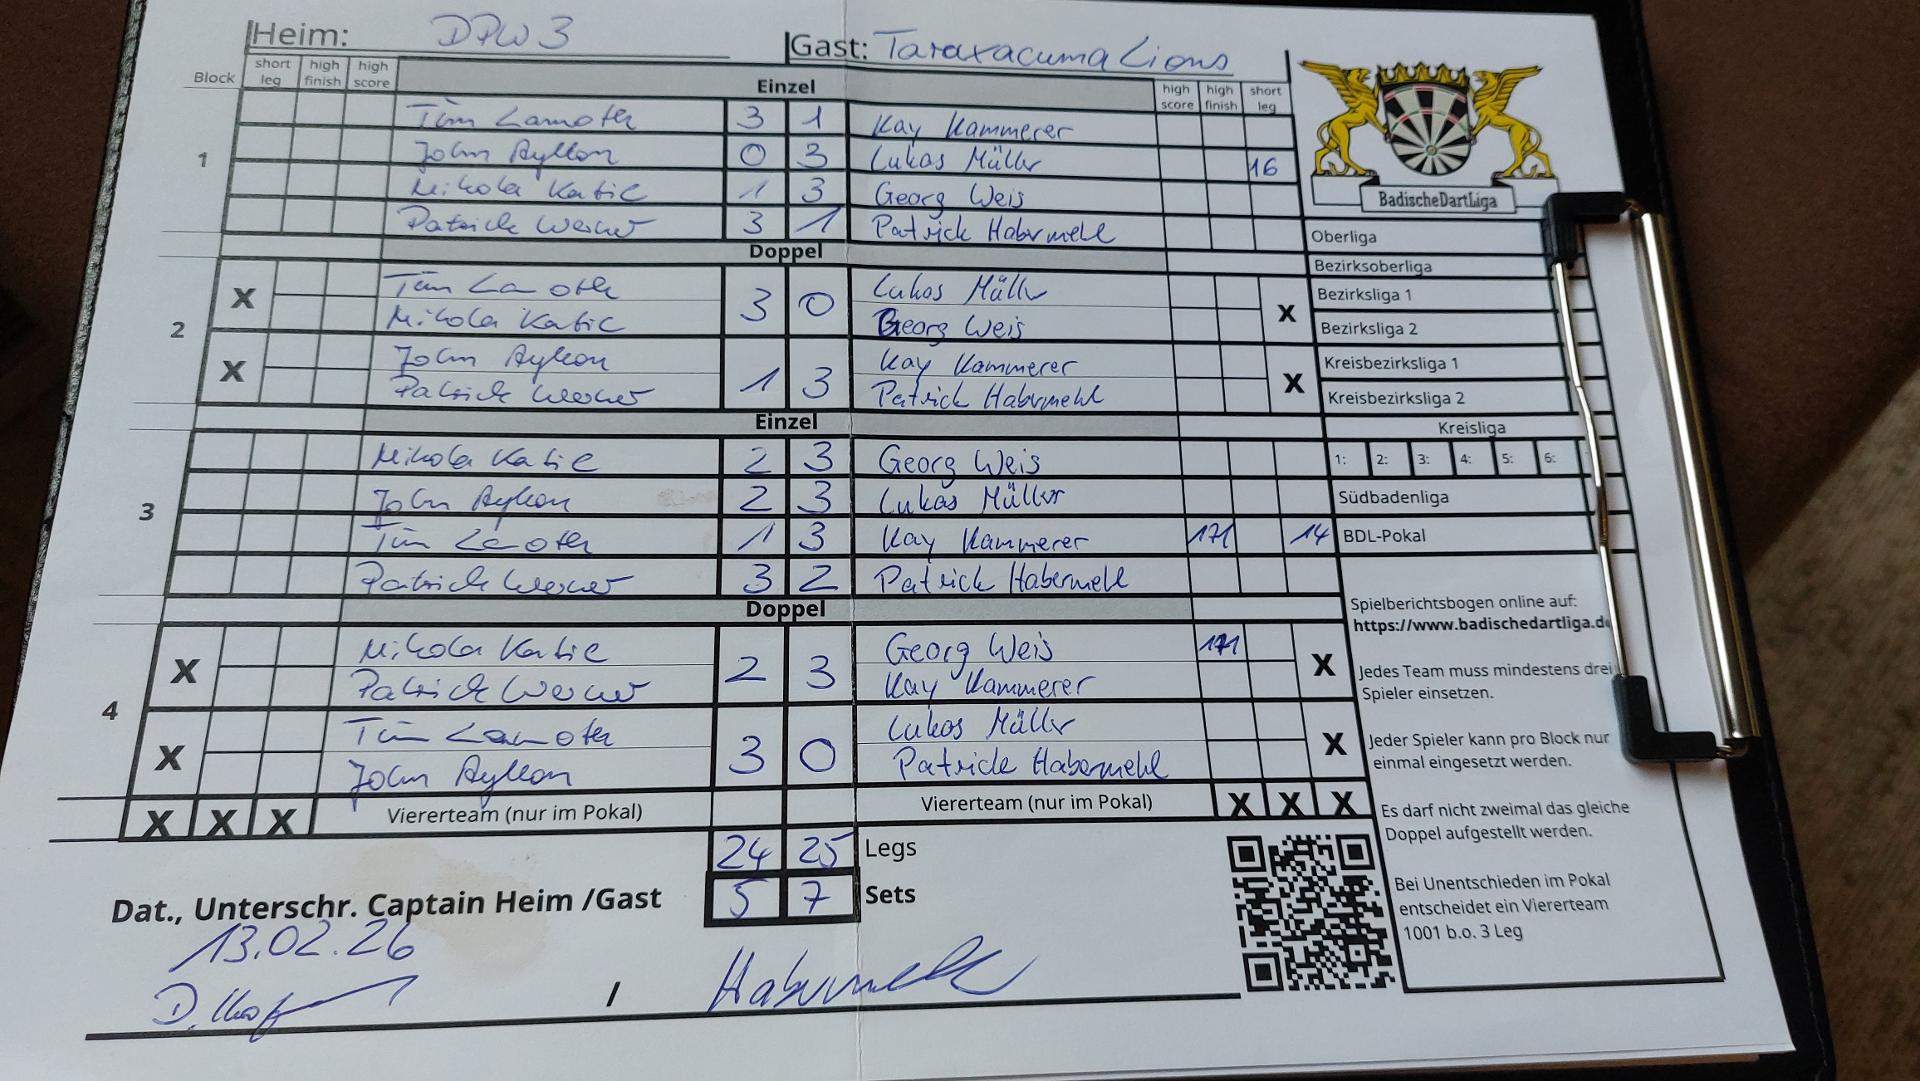 Heim: DPW 3 Gast: Taraxacuma Lions
Block short leg high finish high score Einzel high score high finish short leg
1
Tim Lamoth 3 1 Kay Kammerer
John 0 3 Lukas Müller 16
Mikola Katic 1 3 Georg Weis
Patrick Werner 3 1 Patrick Habermehl
Doppel
2
X Tim Lamoth 3 0 Lukas Müller X
Mikola Katic Georg Weis
X John 1 3 Kay Kammerer X
Patrick Werner Patrick Habermehl
Einzel
3
Mikola Katic 2 3 Georg Weis
John 2 3 Lukas Müller
Tim Lamoth 1 3 Kay Kammerer 171 14
Patrick Werner 3 2 Patrick Habermehl
Doppel
4
X Mikola Katic 2 3 Georg Weis 171 X
Patrick Werner Kay Kammerer
X Tim Lamoth 3 0 Lukas Müller X
John Patrick Habermehl
X X X Viererteam (nur im Pokal) Viererteam (nur im Pokal) X X X
24 25 Legs
5 7 Sets
Dat., Unterschr. Captain Heim /Gast
13.02.26
/ Habermehl
BadischeDartLiga
Oberliga
Bezirksoberliga
Bezirksliga 1
Bezirksliga 2
Kreisbezirksliga 1
Kreisbezirksliga 2
Kreisliga
1: 2: 3: 4: 5: 6:
Südbadenliga
BDL-Pokal
Spielberichtsbogen online auf:
https://www.badischedartliga.de
Jedes Team muss mindestens drei
Spieler einsetzen.
Jeder Spieler kann pro Block nur
einmal eingesetzt werden.
Es darf nicht zweimal das gleiche
Doppel aufgestellt werden.
Bei Unentschieden im Pokal
entscheidet ein Viererteam
1001 b.o. 3 Leg